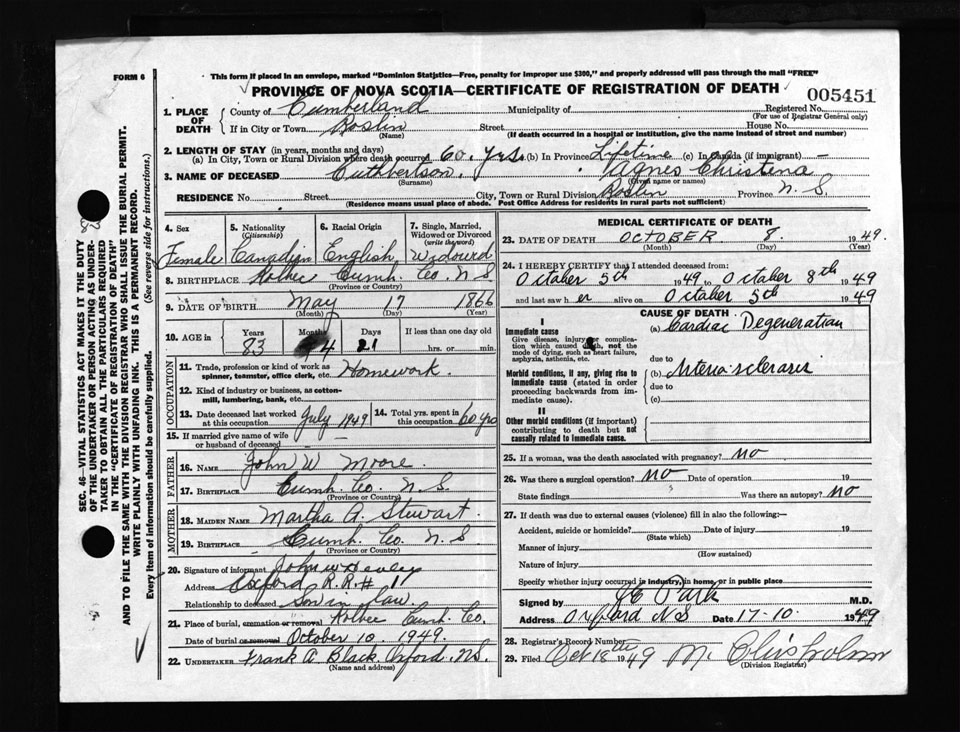 FORM 6
This form if placed in an envelope, marked "Dominion Statistics—Free, penalty for improper use $300," and properly addressed will pass through the mail "FREE"
PROVINCE OF NOVA SCOTIA—CERTIFICATE OF REGISTRATION OF DEATH
005451
1. PLACE OF DEATH
County of Cumberland Municipality of Registered No.
(For use of Registrar General only)
If in City or Town Roslin Street House No.
(Name) (If death occurred in a hospital or institution, give the name instead of street and number)
2. LENGTH OF STAY (in years, months and days)
(a) In City, Town or Rural Division where death occurred 60. yrs. (b) In Province Lifetime (c) In Canada (if immigrant) —
3. NAME OF DECEASED Cuthbertson. Agnes Christina
(Surname) (Given name or names)
RESIDENCE No. Street City, Town or Rural Division Roslin Province N. S.
(Residence means usual place of abode. Post Office Address for residents in rural parts not sufficient)
4. Sex 5. Nationality (Citizenship) 6. Racial Origin 7. Single, Married, Widowed or Divorced (write the word)
Female Canadian English Widowed
8. BIRTHPLACE Kolbec Cumb. Co. N S
(Province or Country)
9. DATE OF BIRTH May 17 1866
(Month) (Day) (Year)
10. AGE in Years Months Days If less than one day old
83 4 21 hrs. or min.
OCCUPATION
11. Trade, profession or kind of work as spinner, teamster, office clerk, etc. Homework.
12. Kind of industry or business, as cotton-mill, lumbering, bank, etc.
13. Date deceased last worked at this occupation July 1949 14. Total yrs. spent in this occupation 60 yrs
15. If married give name of wife or husband of deceased —
FATHER
16. NAME John W Moore.
17. BIRTHPLACE Cumb. Co. N. S.
(Province or Country)
MOTHER
18. MAIDEN NAME Martha A. Stewart.
19. BIRTHPLACE Cumb. Co. N. S
(Province or Country)
20. Signature of informant John W
Address Oxford R.R.# 1
Relationship to deceased Son in law
21. Place of burial, cremation or removal Kolbec Cumb. Co.
Date of burial or removal October 10. 1949.
22. UNDERTAKER Frank A Black. Oxford, N.S.
(Name and address)
MEDICAL CERTIFICATE OF DEATH
23. DATE OF DEATH OCTOBER 8. 1949.
(Month) (Day) (Year)
24. I HEREBY CERTIFY that I attended deceased from:
October 5th 1949 to October 8th 1949
and last saw her alive on October 5th 1949
CAUSE OF DEATH
I
Immediate cause
Give disease, injury or complication which caused death, not the mode of dying, such as heart failure, asphyxia, asthenia, etc.
(a) Cardiac Degeneration
due to
Morbid conditions, if any, giving rise to immediate cause (stated in order proceeding backwards from immediate cause).
(b) Arterio-sclerosis
due to
(c)
II
Other morbid conditions (if important) contributing to death but not causally related to immediate cause.
25. If a woman, was the death associated with pregnancy? NO
26. Was there a surgical operation? NO Date of operation 19
State findings Was there an autopsy? NO
27. If death was due to external causes (violence) fill in also the following:—
Accident, suicide or homicide? Date of injury 19
(State which)
Manner of injury
(How sustained)
Nature of injury
Specify whether injury occurred in industry, in home, or in public place
Signed by Park M.D.
Address Oxford N S Date 17-10. 1949
28. Registrar's Record Number
29. Filed Oct 18th 1949 M. Chisholm
(Division Registrar)
SEC. 46—VITAL STATISTICS ACT MAKES IT THE DUTY
OF THE UNDERTAKER OR PERSON ACTING AS UNDER-
TAKER TO OBTAIN ALL THE PARTICULARS REQUIRED
IN THE "CERTIFICATE OF REGISTRATION OF DEATH"
AND TO FILE THE SAME WITH THE DIVISION REGISTRAR WHO SHALL ISSUE THE BURIAL PERMIT.
WRITE PLAINLY WITH UNFADING INK. THIS IS A PERMANENT RECORD.
Every item of information should be carefully supplied. (See reverse side for instructions.)